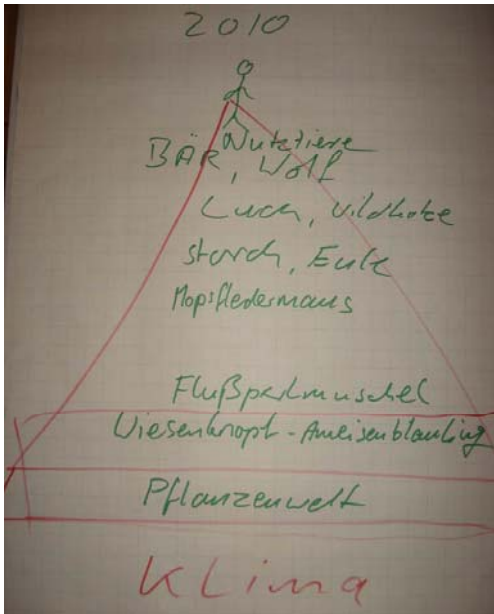 2010
Nutztiere
BÄR, Wolf
Luch, Wildkatze
Storch, Eule
Mopsfledermaus
Flußperlmuschel
Wiesenknopf-Ameisenbläuling
Pflanzenwelt
Klima